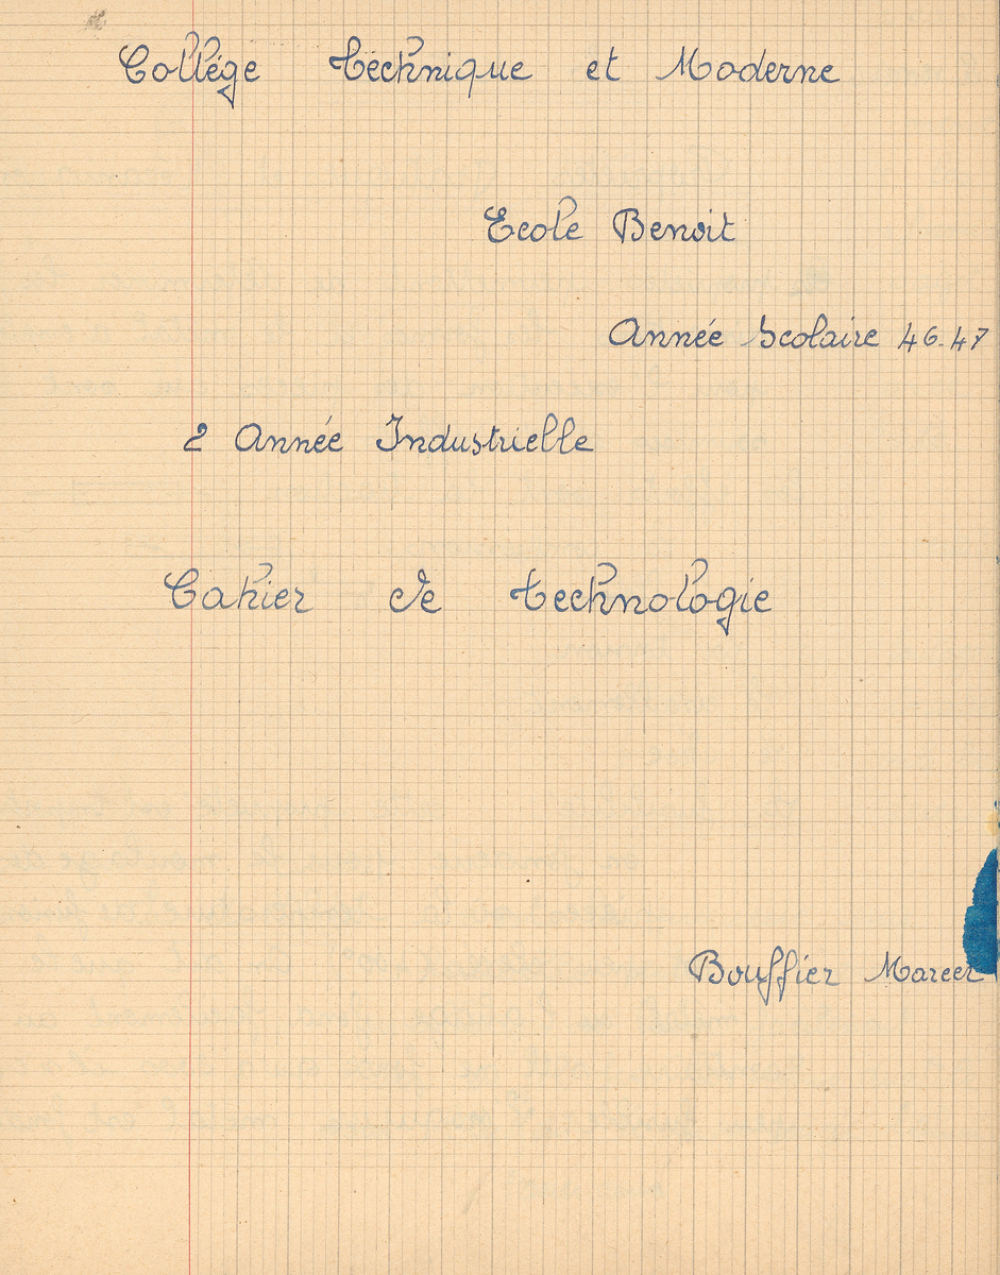 Collége technique et Moderne
Ecole Benoit
Année Scolaire 46-47
2 Année Industrielle
Cahier de technologie
Bouffier Marcel